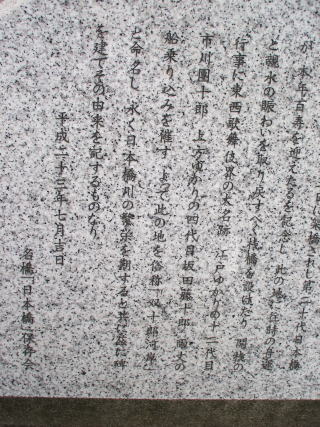 が 本年百寿を迎えたるを記念し 此の地に往時の舟運
と親水の賑わいを取り戻すべく桟橋を設けたり 開桟の
行事に東西歌舞伎界の大名跡 江戸ゆかりの十二代目
市川團十郎 上方ゆかりの四代目坂田藤十郎 両丈の
船乗り込みを催す よって此の地を俗称「双十郎河岸」
と命名し 永く日本橋川の繁栄を期すると共に茲に碑
を建てその由来を記するものなり
平成二十三年七月吉日
名橋「日本橋」保存会